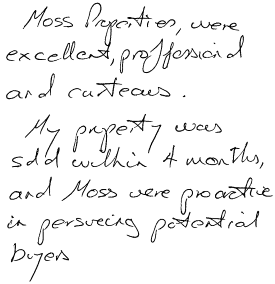 Moss Properties, were
excellent, proffessional
and curteous.
My property was
sold within 4 months,
and Moss were proactive
in persueing potential
buyers